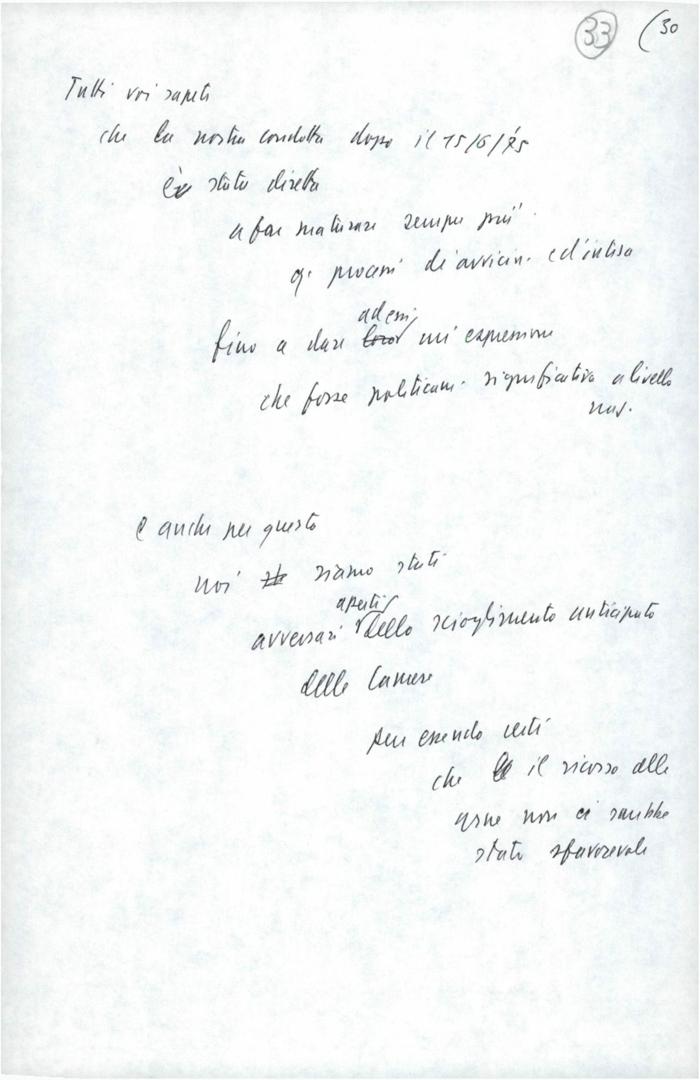 33 (30
Tutti voi sapete
che la nostra condotta dopo il 15/6/75
è stata diretta
a far maturare sempre più
q. processi di avvicin. e d'intesa
adessi
fino a dare loro un'espressione
che fosse politicam. significativa a livello
naz.
e anche per questo
noi siamo stati
aperti
avversari dello scioglimento anticipato
delle Camere
pur essendo certi
che il ricorso alle
urne non ci sarebbe
stato sfavorevole